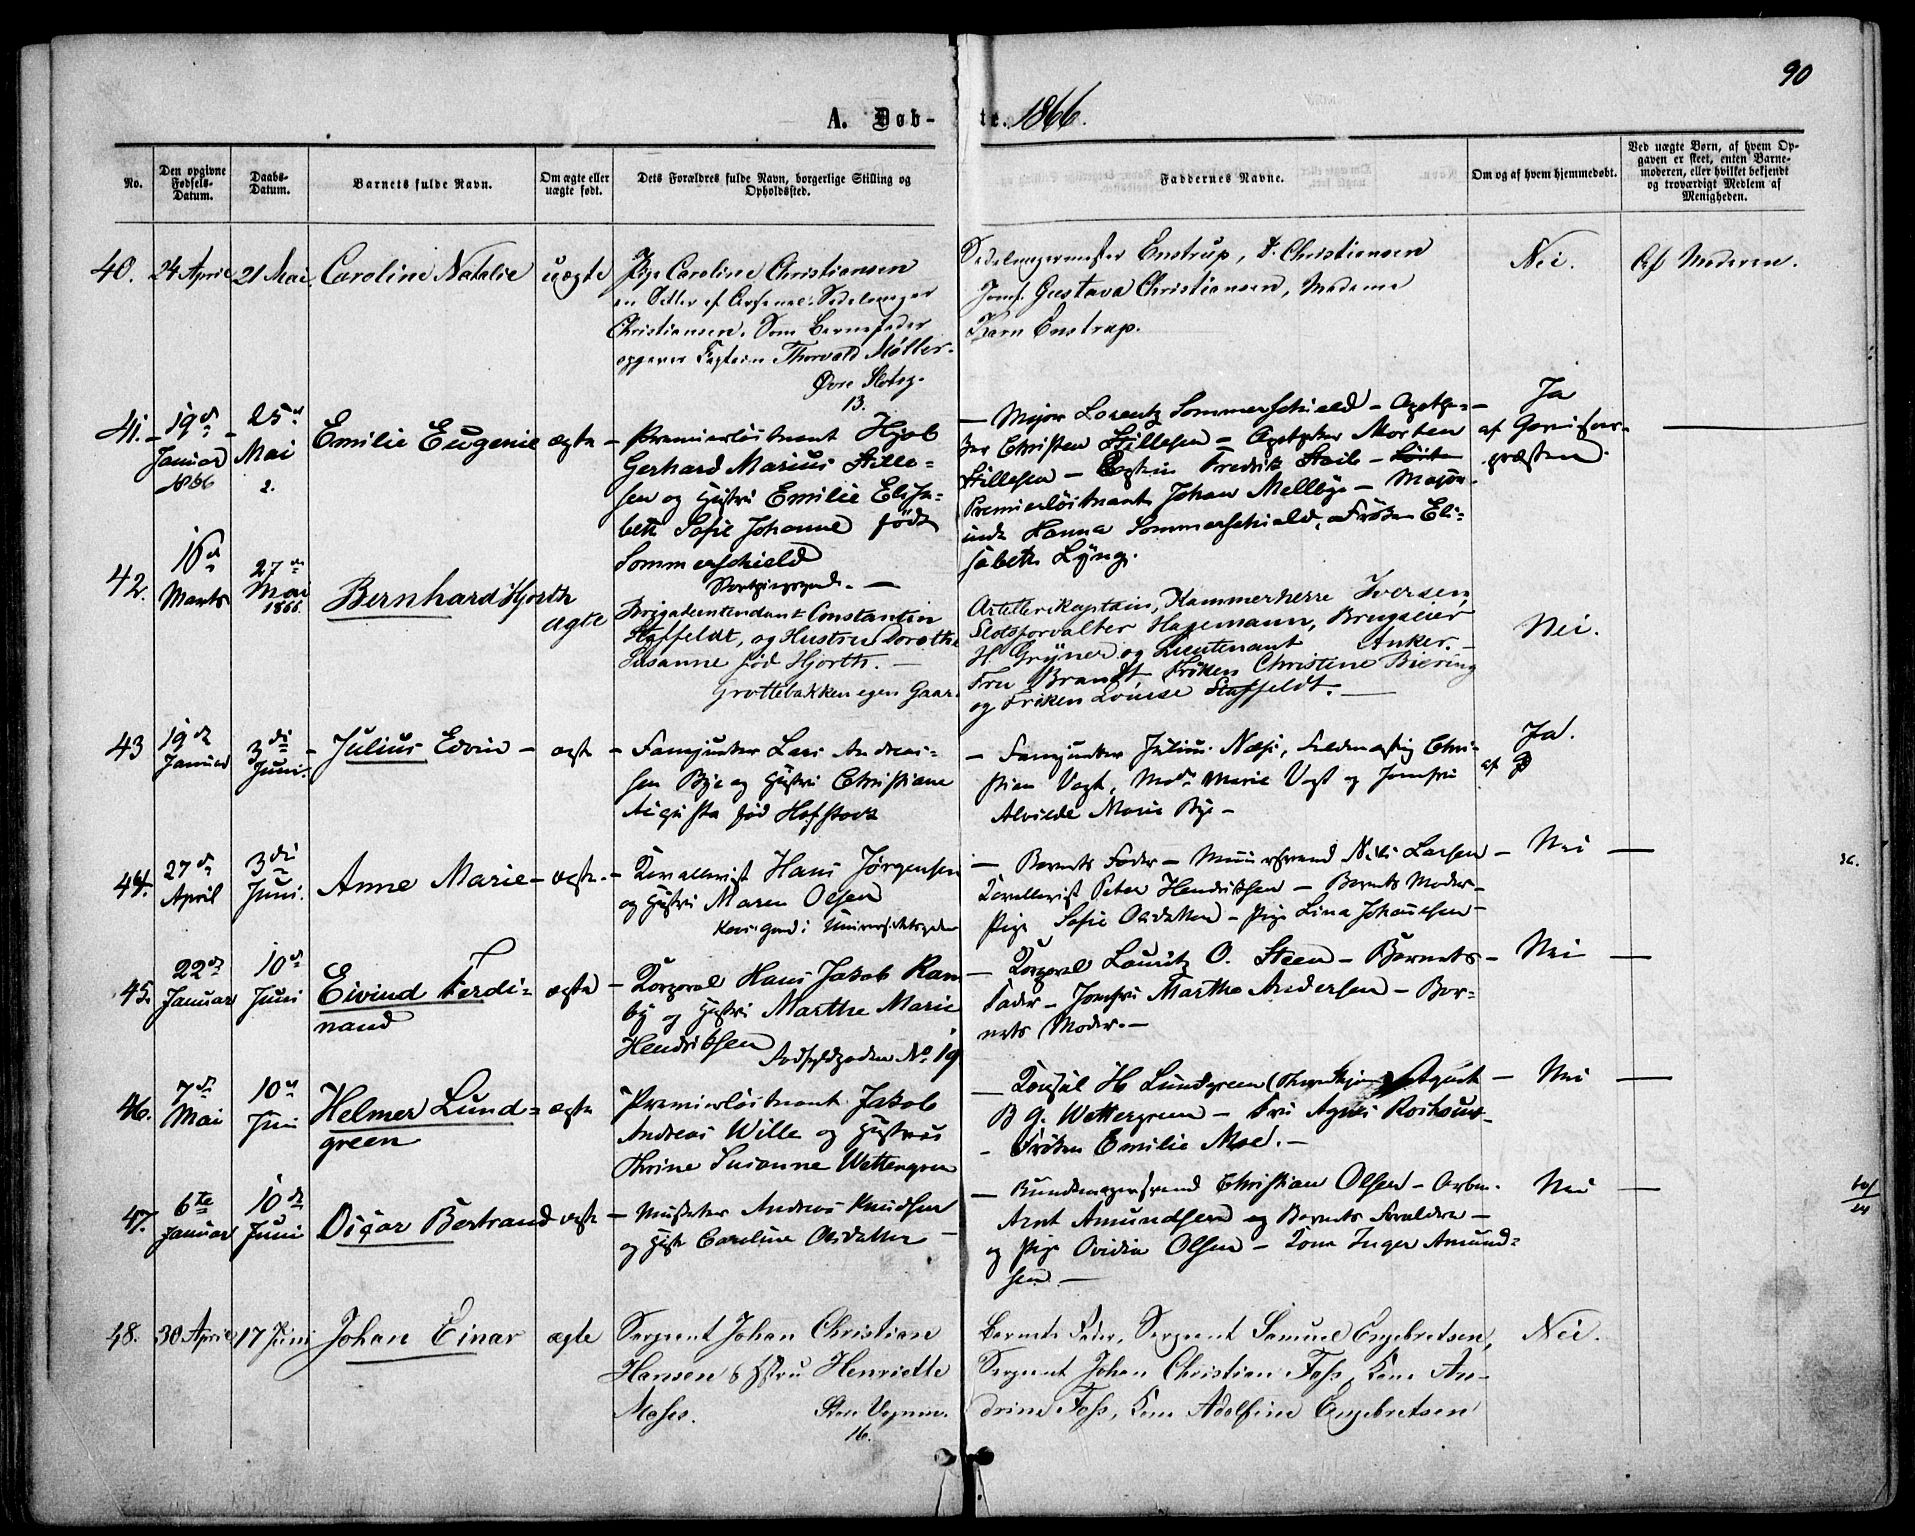 90
A. Døb-
te. 1866.
No.
Den opgivne Fødsels-Datum.
Daabs-Datum.
Barnets fulde Navn.
Om ægte eller uægte født.
Dets Forældres fulde Navn, borgerlige Stilling og Opholdssted.
Faddernes Navne.
Om og af hvem hjemmedøbt.
Ved uægte Børn, af hvem Op-
gaven er skeet, enten Barne-
moderen, eller hvilket bekjendt
og troværdigt Medlem af
Menigheden.
40. 24 April 21 Mai Caroline Natalie uægte
Pige Caroline Christiansen
en Datter af Arsenal-Sadelmager
Christiansen. Som Barnefader
opgives Captein Thorvald Møller.
Øvre Slotsg.
13.
Sadelmagermester Enstrup, Christiansen
Jomf. Gustava Christiansen, Madame
Karn Enstrup.
Nei.
Af Moderen.
41. 19de Januar 1866 25de Mai Emilie Eugenie ægte
Premierløitnant Hjob
Gerhard Marius Stille-
sen og Hustru Emilie Elisa-
beth Sofie Johanne født
Sommerschield
— Major Lorentz Sommerschield — Apothe-
ker Christen Stillesen — Apotheker Morten
Stillesen — Captein Fredrik Stoib —
Premierløitnant Johan Mellbye — Major-
inde Hanna Sommerschield, Frøken Eli-
sabeth Lyng.
Ja
af Garnisons-
præsten.
42. 16de Marts 27de Mai 1866 Bernhard Hjorth ægte
Brigadeintendant Constantin
Staffeldt, og Hustru Dorothe
Susanne fød Hjorth. —
Grottebakken egen Gaard
Artillerikaptain, Kammerherre Iversen,
Slotsforvalter Hagemann, Brugseier
H. Grüner og Lieutenant Anker. —
Fru Brandt, Frøken Christine Biering
og Frøken Louise Staffeldt. —
Nei.
43 19de Januar 3die Juni Julius Edvin — ægte
— Fanejunker Lars Andrea-
sen Bye og Hustru Christiane
Augusta fød Hofstock
— Fanejunker Julius Næss, Feldwæbel Chri-
stian Vogt, Mad. Marie Vogt og Jomfru
Alvilde Marie Bye —
Ja.
af P
44. 27de April 3die Juni. Anne Marie — ægte
— Kavallerist Hans Jørgensen
og Hustru Maren Olsen
i Universitetsgaden
— Barnets Fader — Murersvend Nils Larsen —
Kavallerist Peter Hendriksen — Barnets Moder —
Pige Sofie Olsdatter — Pige Lina Johannesen —
Nei —
45. 22de Januar 10de Juni Eivind Ferdi-
nand ægte
— Korporal Hans Jakob Ram-
by og Hustru Marthe Marie
Hendriksen
No. 19
— Korporal Lauritz O. Steen — Barnets
Fader — Jomfru Marthe Andersen — Bar-
nets Moder. —
Nei —
46. 7de Mai 10de Juni Helmer Lund-
green ægte
Premierløitnant Jakob
Andreas Wille og Hustru
Thrine Susanne Wettergreen
— Konsul H. Lundgreen (Throndhjem) Agent
B G. Wettergreen — Fru Agnes
— Frøken Emilie Moe. —
Nei —
47. 6te Januar 10de Juni Osgar Bertrand ægte
— Musketer Andreas Knudsen
og Hustr Caroline Olsdatter —
— Bundtmagersvend Christian Olsen — Arbm.
Arnt Amundsen og Barnets Forældre —
og Pige Ovidia Olsen — Kone Inger Amund-
sen —
Nei —
48. 30 April 17 Juni Johan Einar ægte
Sergeant Johan Christian
Hansen & Hstru Henriette
Moses.
Store Vognm.
16.
Barnets Fader, Sergeant Samuel Engebretsen,
Sergeant Johan Christian Foss, Kone An-
drine Foss, Kone Adolfine Engebretsen
Nei.